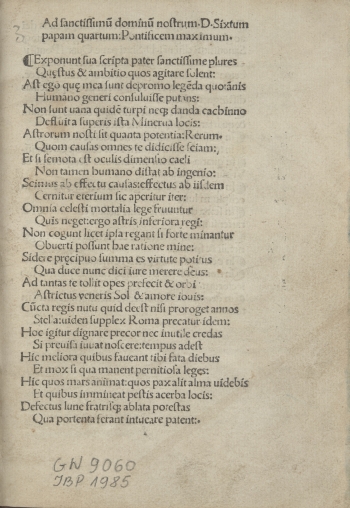 Ad sanctissimū dominū nostrum·D·Sixtum
papam quartum: Pontificem maximum·
¶Exponunt sua scripta pater sanctissime plures
Quęstus & ambitio quos agitare solent:
Ast ego quę mea sunt depromo legēda quotānis
Humano generi consuluisse putans:
Non sunt uana quidē turpi neq; danda cachinno
Destituta superis ista Minerua locis:
Astrorum nosti sit quanta potentia: Rerum·
Quom causas omnes te didicisse sciam:
Et si semota est oculis dimensio caeli
Non tamen humano distat ab ingenio:
Scimus ab effectu causas: effectus ab iisdem
Cernitur eterium sic aperitur iter:
Omnia celesti mortalia lege fruuntur
Quis neget: ergo astris inferiora regi:
Non cogunt licet ipsa regant si forte minantur
Obuerti possunt hae ratione minę:
Sidere pręcipuo summa es uirtute potitus
Qua duce nunc dici iure merere deus:
Ad tantas te tollit opes prefecit & orbi
Astrictus veneris Sol & amore iouis:
Cūcta regis nutu quid deest nisi proroget annos
Stella: uiden supplex Roma precatur idem:
Hoc igitur dignare precor nec inutile credas
Si preuisa iuuat noscere: tempus adest
Hic meliora quibus faueant tibi fata diebus
Et mox si qua manent pernitiosa leges:
Hic quos mars animat: quos pax alit alma uidebis
Et quibus immineat pestis acerba locis:
Defectus lune fratrisq; ablata potestas
Qua portenta ferant intucare patent:·
GW 9060
IBP 1985